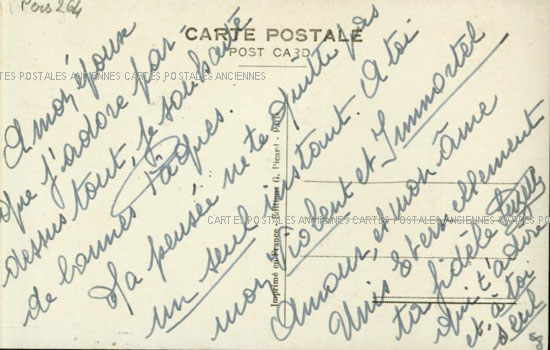 Pers 264
CARTE POSTALE
POST CARD
CARTES POSTALES ANCIENNES CARTES POSTALES ANCIENNES
A mon époux
que j'adore par
dessus tout, je souhaite
de bonnes Pâques.
Ma pensée ne te quitte pas
un seul instant. A toi
mon violent et Immortel
Amour, et mon âme
Unis Eternellement
ta fidèle
qui t'adore
et à toi
seul
Imprimé en France - Editions G. Picard - Paris
CARTES POSTALES ANCIENNES CARTES POSTALES ANCIENNES CARTES POSTALES ANCIENNES